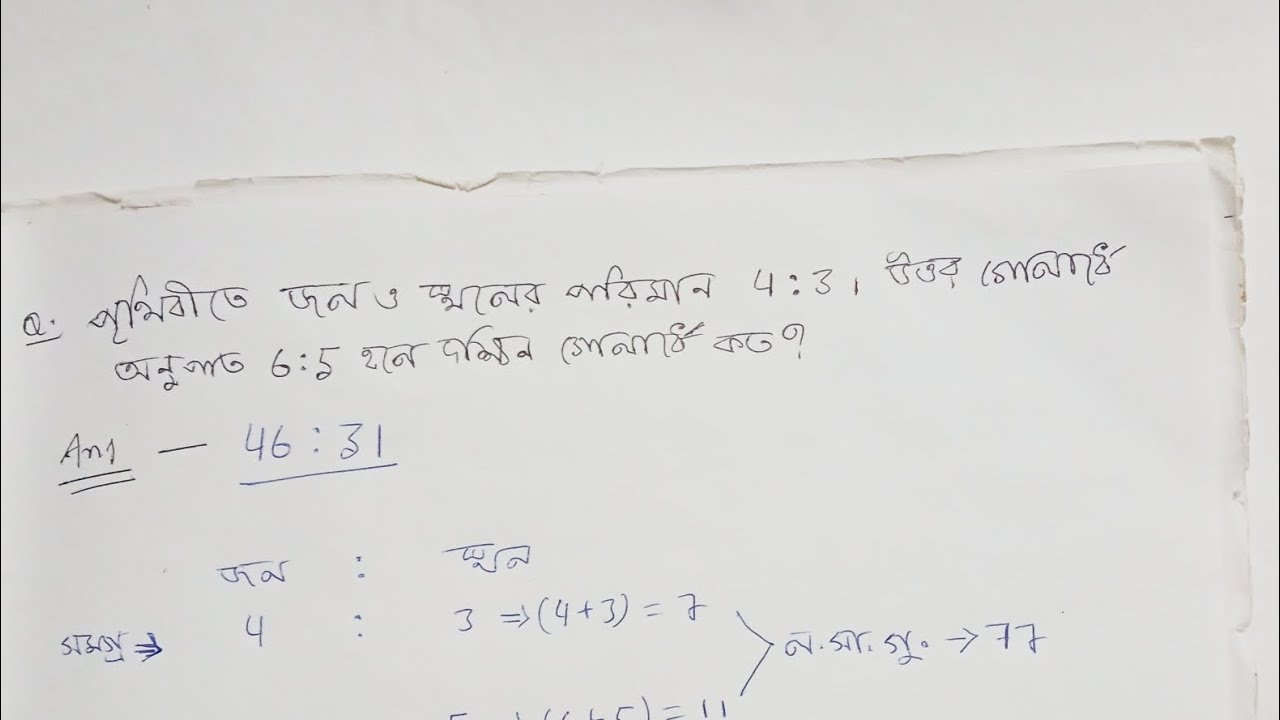 Q. পৃথিবীতে জল ও স্থলের পরিমান 4:3, উত্তর গোলার্ধে
অনুপাত 6:5 হলে দক্ষিন গোলার্ধে কত?
Ans — 46:31
জল : স্থল
সমগ্র ⇒ 4 : 3 ⇒ (4+3) = 7
ল.সা.গু. → 77
5 ⇒ (6+5) = 11